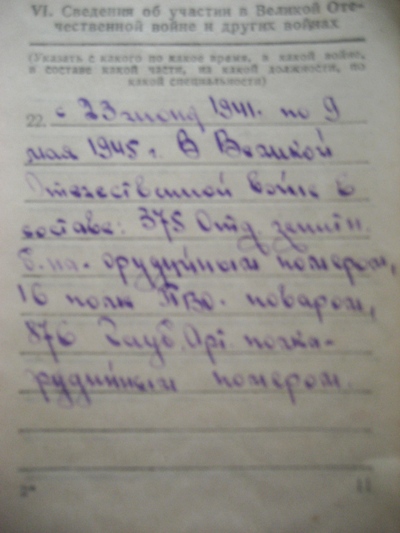 VI. Сведения об участии в Великой Оте-
чественной войне и других войнах
(Указать с какого по какое время, в какой войне,
в составе какой части, на какой должности, по
какой специальности)
22. с 23 июня 1941 г. по 9
мая 1945 г. В Великой
Отечественной войне в
составе: 375 Отд. зенитн.
б-на - орудийным номером,
16 полк ПВО - поваром,
876 Гауб. Арт. полка -
орудийным номером.
2* 11